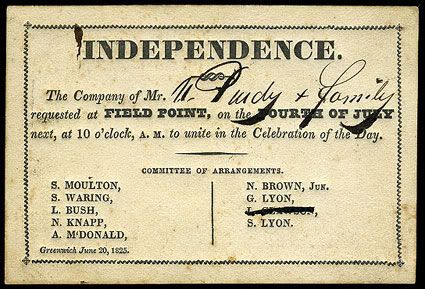 INDEPENDENCE.
The Company of Mr. Purdy & Family
requested at FIELD POINT, on the FOURTH OF JULY
next, at 10 o'clock, A. M. to unite in the Celebration of the Day.
COMMITTEE OF ARRANGEMENTS.
S. MOULTON,
S. WARING,
L. BUSH,
N. KNAPP,
A. M'DONALD,
N. BROWN, JUN.
G. LYON,
S. LYON.
Greenwich June 20, 1825.